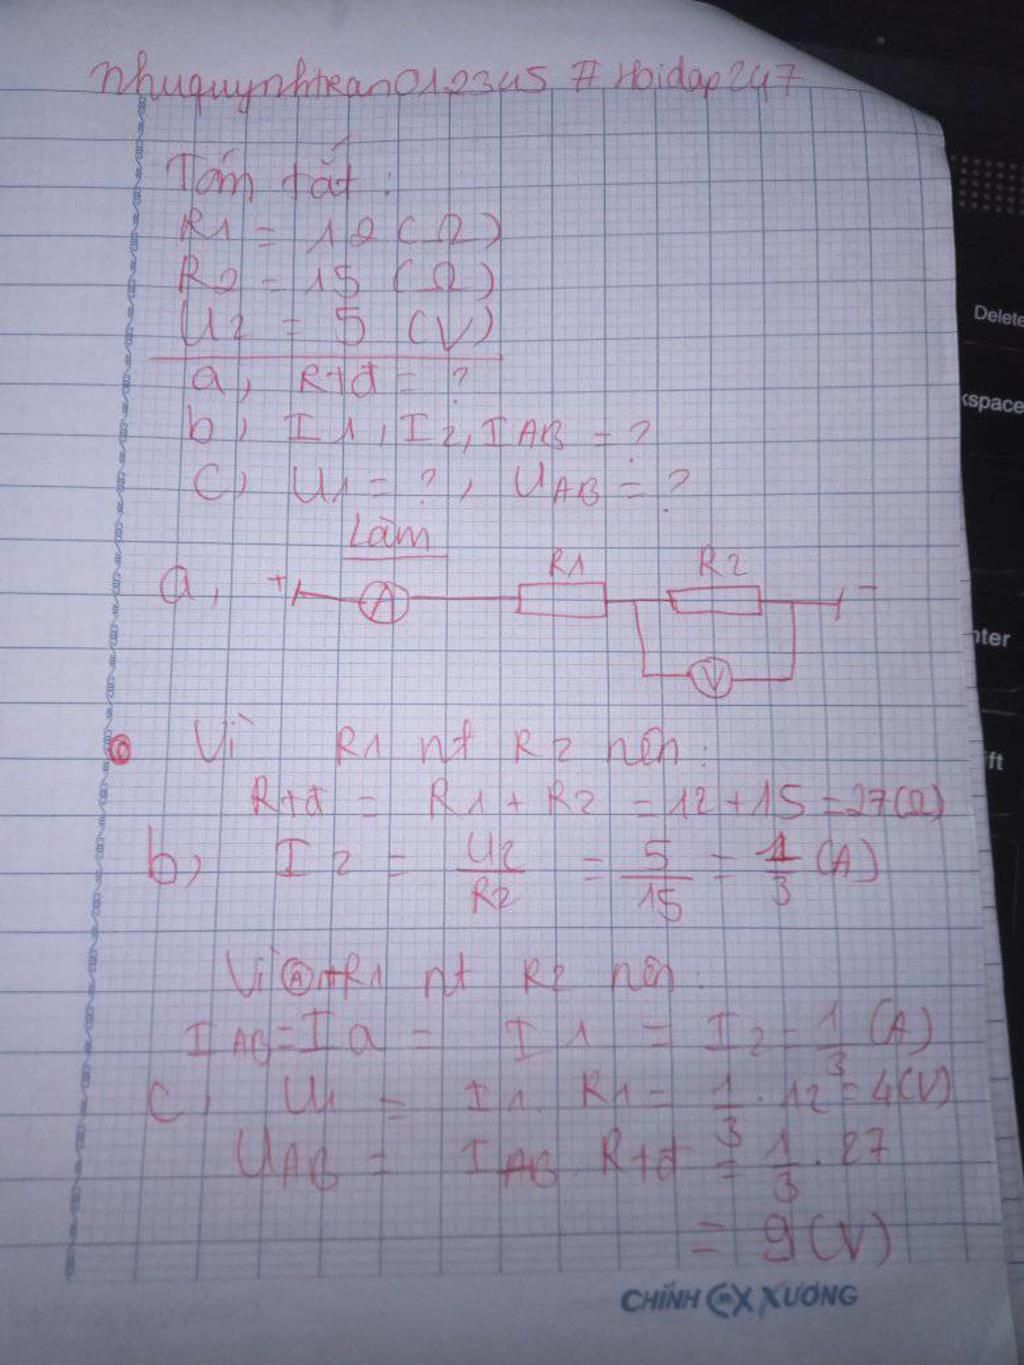 nhuquynhtran012345 # Hoidap247
Tóm tắt :
R1 = 12 (Ω)
R2 = 15 (Ω)
U2 = 5 (V)
a, Rtđ = ?
b, I1, I2, IAB = ?
c, U1 = ?, UAB = ?
Làm
a, + A R1 R2 -
V
Vì R1 nt R2 nên:
Rtđ = R1 + R2 = 12 + 15 = 27 (Ω)
b, I2 = U2/R2 = 5/15 = 1/3 (A)
Vì A nt R1 nt R2 nên:
IAB = Ia = I1 = I2 = 1/3 (A)
c, U1 = I1. R1 = 1/3 . 12 = 4 (V)
UAB = IAB Rtđ = 1/3 . 27
= 9 (V)
CHÍNH XƯƠNG
Delete
kspace
nter
ft